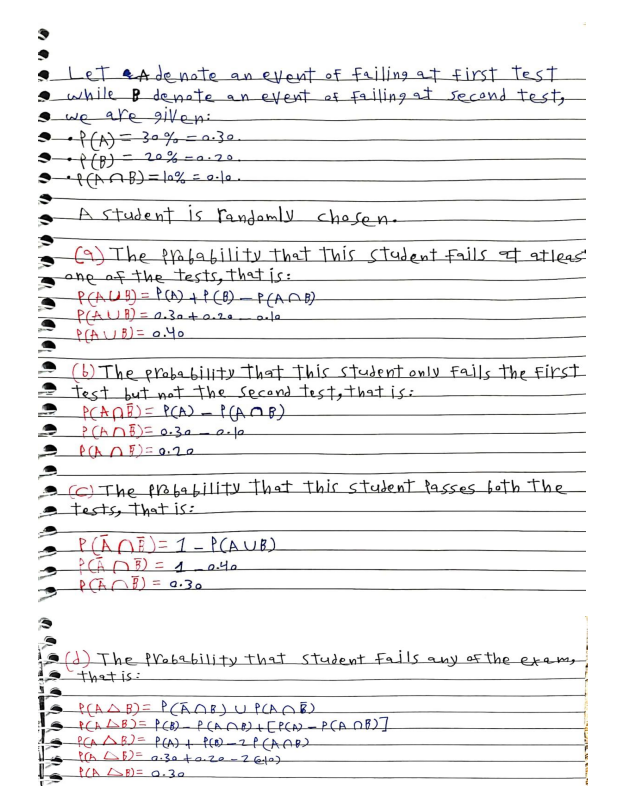 Let A denote an event of failing at first test
while B denote an event of failing at second test,
we are given:
• P(A) = 30% = 0.30.
• P(B) = 20% = 0.20.
• P(A ∩ B) = 10% = 0.10.
A student is randomly chosen.
(a) The probability that this student fails at atleas
one of the tests, that is:
P(A ∪ B) = P(A) + P(B) - P(A ∩ B)
P(A ∪ B) = 0.30 + 0.20 - 0.10
P(A ∪ B) = 0.40
(b) The probability that this student only fails the first
test but not the second test, that is:
P(A ∩ B̅) = P(A) - P(A ∩ B)
P(A ∩ B̅) = 0.30 - 0.10
P(A ∩ B̅) = 0.20
(c) The probability that this student passes both the
tests, that is:
P(A̅ ∩ B̅) = 1 - P(A ∪ B)
P(A̅ ∩ B̅) = 1 - 0.40
P(A̅ ∩ B̅) = 0.30
(d) The probability that student fails any of the exam,
that is:
P(A △ B) = P(A̅ ∩ B) ∪ P(A ∩ B̅)
P(A △ B) = P(B) - P(A ∩ B) + [P(A) - P(A ∩ B)]
P(A △ B) = P(A) + P(B) - 2P(A ∩ B)
P(A △ B) = 0.30 + 0.20 - 2(0.10)
P(A △ B) = 0.30